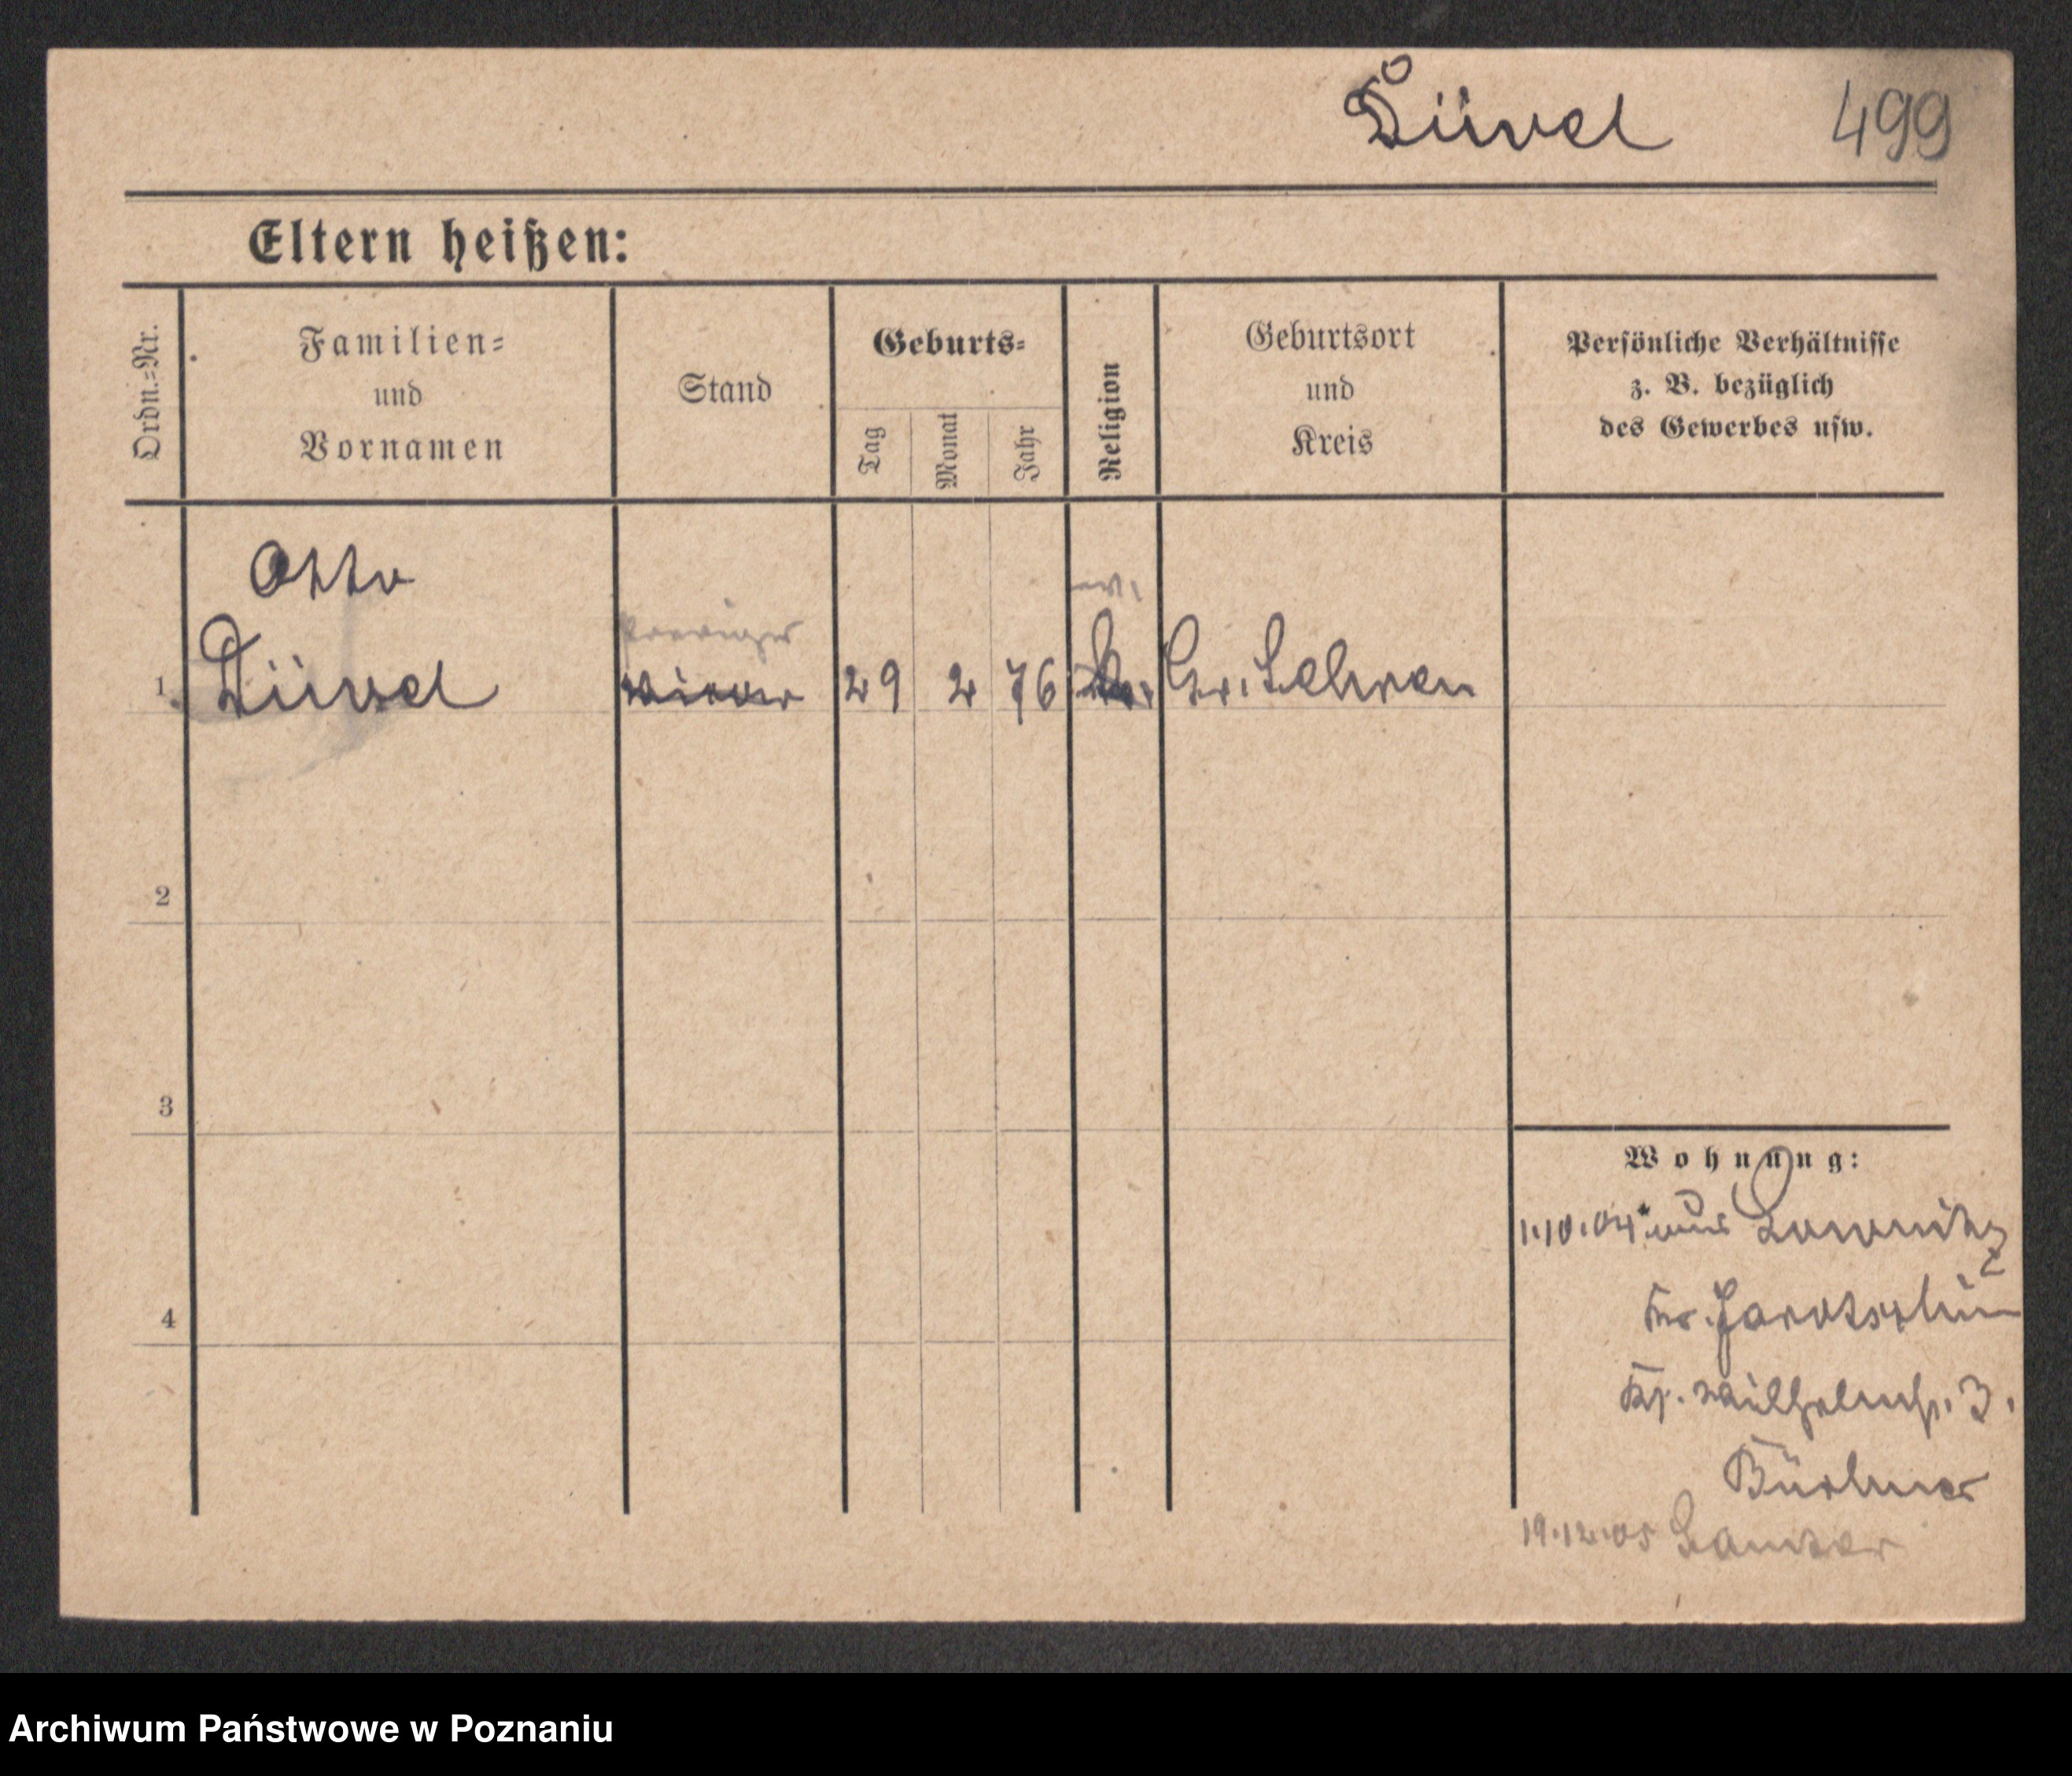 Düvel 499
Eltern heißen:
Ordn.=Nr.
Familien=
und
Vornamen
Stand
Geburts=
Tag
Monat
Jahr
Religion
Geburtsort
und
Kreis
Persönliche Verhältnisse
z. B. bezüglich
des Gewerbes usw.
Otto
ev.
Prediger
1 Düvel 29 2 76 Gr. Lehren
2
3
4
Wohnung:
1.10.04 aus
Kr. Jarotschin
Wilhelmspl. 3.
Büchner
19.12.05
Archiwum Państwowe w Poznaniu